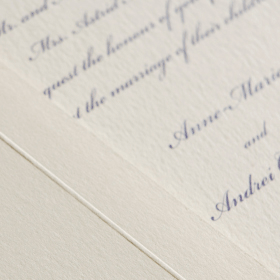 Mr. and
Mrs. Astrid
quest the honour of your
t the marriage of their
Anne-Marie
and
Andrei